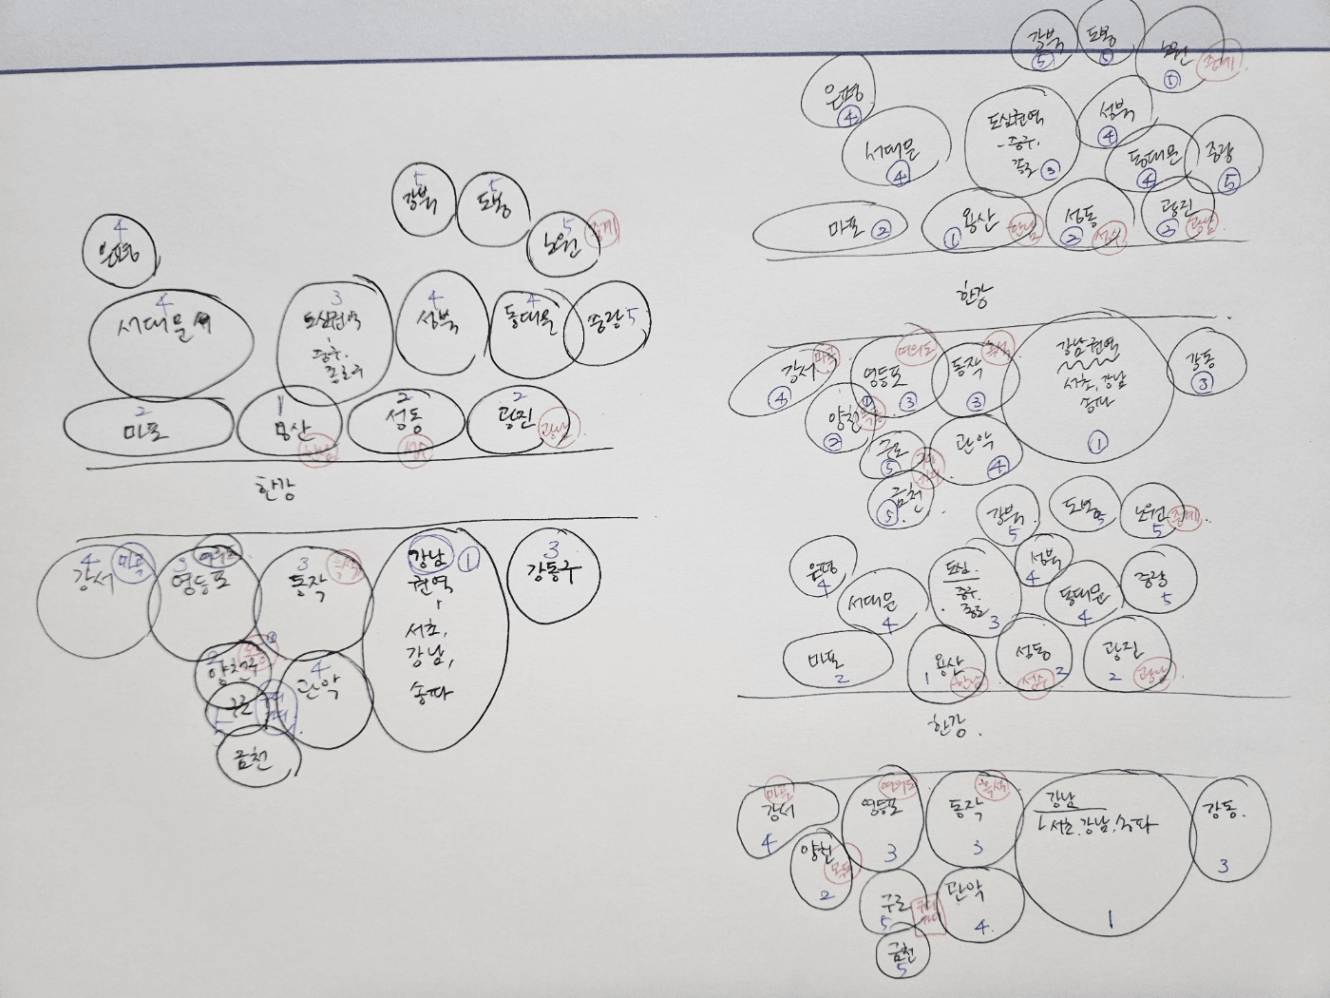 강북
5
도봉
5
노원
5
중계
은평
4
서대문
4
도심권역
중구.
종로구
3
성북
4
동대문
4
중랑 5
마포
2
용산
1
성동
2
성수
광진
2
광남
한강
강서
4
마곡
영등포
3
여의도
동작
3
흑석
강남
권역
1
서초.
강남,
송파
강동구
3
양천구
2
관악
4
구로
5
금천
강북
5
도봉
5
노원
5
중계
은평
4
서대문
4
도심권역
- 중구.
종로
3
성북
4
동대문
4
중랑
5
마포 2
용산
1
한남
성동
2
성수
광진
2
광남
한강
강서
4
마곡
영등포
3
여의도
동작
3
흑석
강남권역
서초, 강남
송파
1
강동
3
양천
2
구로
5
관악
4
금천
5
강북
5
도봉
5
노원
5
중계
은평
4
서대문
4
도심
중구.
종로
3
성북
4
동대문
4
중랑
5
마포
2
용산
1
한남
성동
2
성수
광진
2
광남
한강.
마곡
강서
4
영등포
3
여의도
동작
3
흑석
강남
서초.강남.송파
1
강동.
3
양천
2
목동
구로
5
구디
가디
관악
4.
금천
5